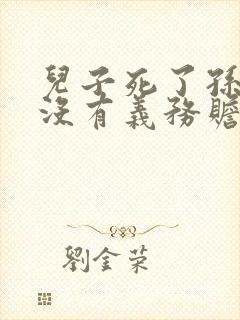 兒子死了孫
沒有義務贍
劉金荣